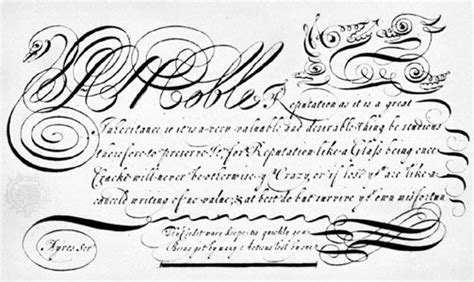 A Noble Reputation as it is a great
Inheritance so it is a very valuable and desirable thing be studious
therefore to preserve it, for Reputation like a Glass being once
Crackt will never be otherwise yⁿ Crazy or if lost yᵒᵘ are like a
cancel'd writing of no value; & at best do but survive yʳ own misfortun
Ayres Scr
quickly gone
Being got by many Actions lost by one